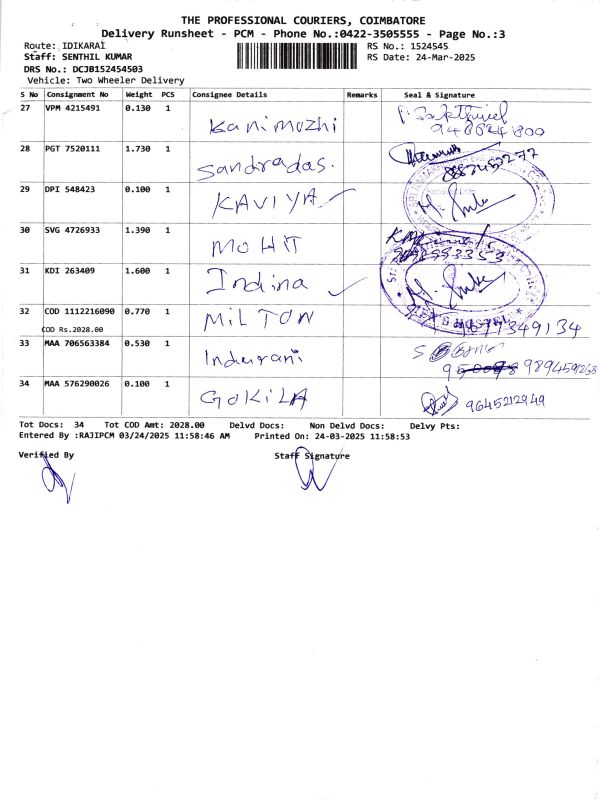 THE PROFESSIONAL COURIERS, COIMBATORE
Delivery Runsheet - PCM - Phone No.:0422-3505555 - Page No.:3
Route: IDIKARAI RS No.: 1524545
Staff: SENTHIL KUMAR RS Date: 24-Mar-2025
DRS No.: DCJB152454503
Vehicle: Two Wheeler Delivery
S No Consignment No Weight PCS Consignee Details Remarks Seal & Signature
27 VPM 4215491 0.130 1 Kanimozhi P. Sakthivel
28 PGT 7520111 1.730 1 Sandradas.
29 DPI 548423 0.100 1 KAVIYA
30 SVG 4726933 1.390 1 MOHIT
31 KDI 263409 1.600 1 Indina
32 COD 1112216090 0.770 1 MILTON
COD Rs.2028.00
33 MAA 706563384 0.530 1 Indurani
34 MAA 576290026 0.100 1 GOKILA 9645212949
Tot Docs: 34 Tot COD Amt: 2028.00 Delvd Docs: Non Delvd Docs: Delvy Pts:
Entered By :RAJIPCM 03/24/2025 11:58:46 AM Printed On: 24-03-2025 11:58:53
Verified By Staff Signature